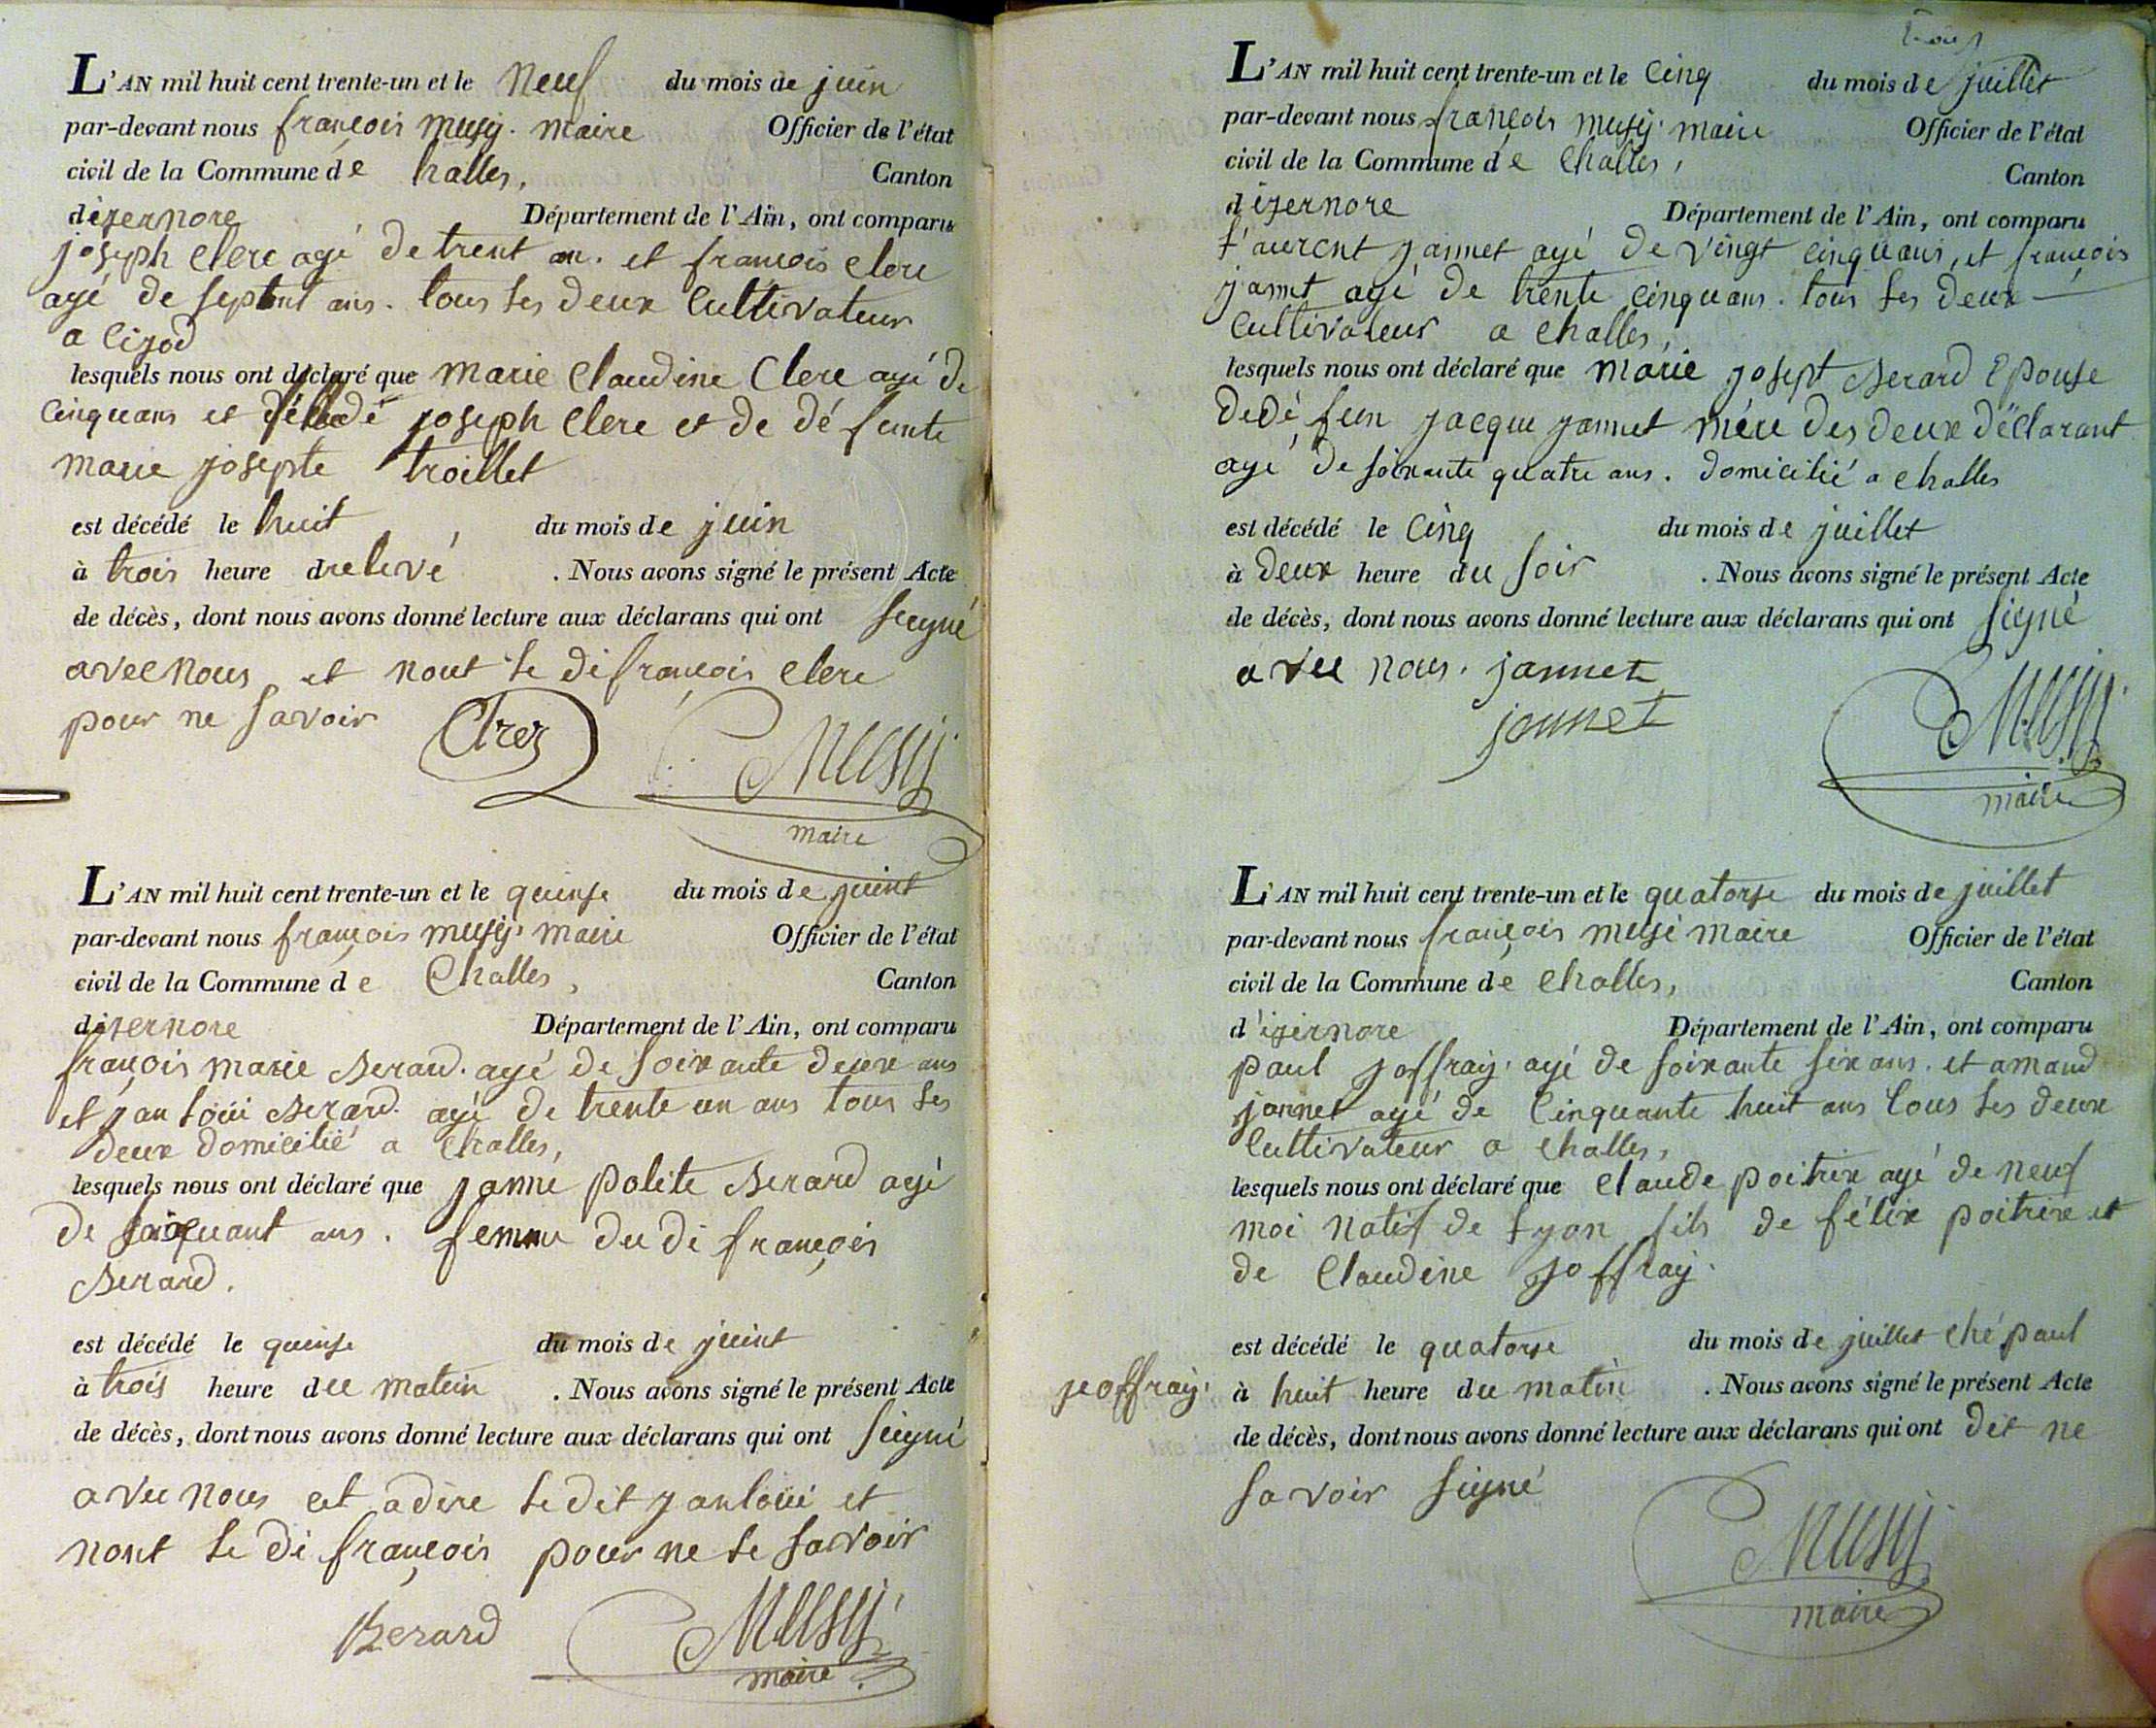 L'AN mil huit cent trente-un et le neuf du mois de juin
par-devant nous françois musy. maire Officier de l'état
civil de la Commune de halles, Canton
dizernore Département de l'Ain, ont comparu
joseph Clerc agé de trent an. et françois clerc
agé de septent ans. tous les deux Cultivateur
a Cizod
lesquels nous ont déclaré que marie Claudine Clerc agé de
Cinquans et fille de joseph Clerc et de défunte
marie josepte troillet
est décédé le huit du mois de juin
à trois heure drelevé . Nous avons signé le présent Acte
de décès, dont nous avons donné lecture aux déclarans qui ont seigné
avec nous et nont le di françois clerc
pour ne savoir
Musy
maire
L'AN mil huit cent trente-un et le quinse du mois de juint
par-devant nous françois musy. maire Officier de l'état
civil de la Commune de Challes, Canton
dizernore Département de l'Ain, ont comparu
françois marie Berard. agé de soixante deux ans
et jan louii Berard. agé de trente un ans tous les
deux domicilié a Challes,
lesquels nous ont déclaré que janne polite Berard agé
de ans. femme du di françois
Berard.
est décédé le quinse du mois de juint
à trois heure du matin . Nous avons signé le présent Acte
de décès, dont nous avons donné lecture aux déclarans qui ont seigné
avec nous cet adire le dit janloui et
nont le di françois pour ne le savoir
Berard Musy
maire
L'AN mil huit cent trente-un et le Cinq du mois de juillet
par-devant nous françois musy. maire Officier de l'état
civil de la Commune de Challes, Canton
dizernore Département de l'Ain, ont comparu
l'aurent jannet agé de vingt cinquans, et françois
jannet agé de trente cinquans. tous les deux
Cultivateur a challes,
lesquels nous ont déclaré que marie josept Berard Epouse
de défun jacque jannet mère des deux déclarant
agé de soixante quatre ans. domicilié a challes
est décédé le Cinq du mois de juillet
à deux heure du soir . Nous avons signé le présent Acte
de décès, dont nous avons donné lecture aux déclarans qui ont signé
avec nous. jannet
jannet
Musy
maire
L'AN mil huit cent trente-un et le quatorse du mois de juillet
par-devant nous françois musi maire Officier de l'état
civil de la Commune de Challes, Canton
d'izernore Département de l'Ain, ont comparu
paul joffray. agé de soixante six ans. et amand
jannet agé de Cinquante huit ans tous les deux
Cultivateur a challes,
lesquels nous ont déclaré que claude poitrix agé de neuf
moi natif de Lyon fils de félix poitrix et
de Claudine joffray.
est décédé le quatorse du mois de juillet ché paul
jeoffray. à huit heure du matin . Nous avons signé le présent Acte
de décès, dont nous avons donné lecture aux déclarans qui ont dit ne
savoir signé
Musy
maire